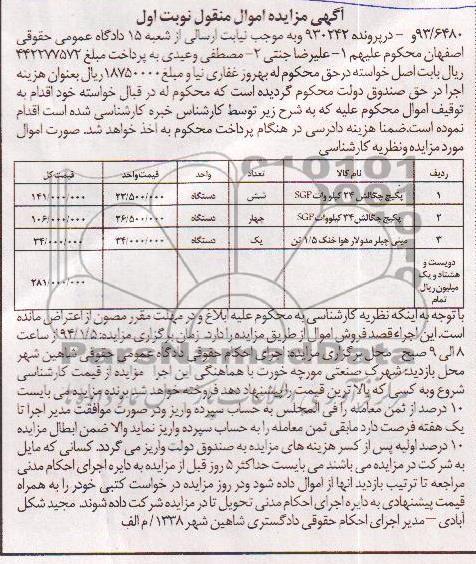 آگهی مزایده اموال منقول نوبت اول
۹۳/۶۴۸۰و - درپرونده ۹۳۰۲۴۲ وبه موجب نیابت ارسالی از شعبه ۱۵ دادگاه عمومی حقوقی
اصفهان محکوم علیهم ۱-علیرضا جنتی ۲- مصطفی وعیدی به پرداخت مبلغ ۴۴۲۲۷۷۵۷۲
ریال بابت اصل خواسته درحق محکوم له بهروز غفاری نیا و مبلغ ۱۸۷۵۰۰۰۰ریال بعنوان هزینه
اجرا در حق صندوق دولت محکوم گردیده است که محکوم له در قبال خواسته خود اقدام به
توقیف اموال محکوم علیه که به شرح زیر توسط کارشناس خبره کارشناسی شده است اقدام
نموده است.ضمنا هزینه دادرسی در هنگام پرداخت محکوم به اخذ خواهد شد. صورت اموال
مورد مزایده ونظریه کارشناسی
ردیف نام کالا تعداد واحد قیمت واحد قیمت کل
۱ پکیج چگالش ۲۴ کیلووات SGP شش دستگاه ۲۳/۵۰۰/۰۰۰ ۱۴۱/۰۰۰/۰۰۰
۲ پکیج چگالش ۳۴ کیلووات SGP چهار دستگاه ۲۶/۵۰۰/۰۰۰ ۱۰۶/۰۰۰/۰۰۰
۳ مینی چیلر مدولار هوا خنک ۱/۵ تن یک دستگاه ۳۴/۰۰۰/۰۰۰ ۳۴/۰۰۰/۰۰۰
دویست و هشتاد و یک میلیون ریال تمام ۲۸۱/۰۰۰/۰۰۰
با توجه به اینکه نظریه کارشناسی به محکوم علیه ابلاغ و در مهلت مقرر مصون از اعتراض مانده
است.این اجراء قصد فروش اموال از طریق مزایده را دارد. زمان برگزاری مزایده: ۹۴/۱/۵ از ساعت
۸ الی ۹ صبح - محل برگزاری مزایده: اجرای احکام حقوقی دادگاه عمومی حقوقی شاهین شهر
محل بازدید: شهرک صنعتی مورچه خورت با هماهنگی این اجرا مزایده از قیمت کارشناسی
شروع وبه کسی که بالاترین قیمت را پیشنهاد دهد فروخته خواهد شد.برنده مزایده می بایست
۱۰ درصد از ثمن معامله را فی المجلس به حساب سپرده واریز ودر صورت موافقت مدیر اجرا تا
یک هفته فرصت دارد مابقی ثمن معامله را به حساب سپرده واریز نماید والا ضمن ابطال مزایده
۱۰ درصد اولیه پس از کسر هزینه های مزایده به صندوق دولت واریز می گردد. کسانی که مایل
به شرکت در مزایده می باشند می بایست حداکثر ۵ روز قبل از مزایده به دایره اجرای احکام مدنی
مراجعه تا ترتیب بازدید آنها از اموال داده شود ودر روز مزایده در خواست کتبی خودر را به همراه
قیمت پیشنهادی به دایره اجرای احکام مدنی تحویل تا در مزایده شرکت داده شوند. مجید شکل
آبادی - مدیر اجرای احکام حقوقی دادگستری شاهین شهر ۱۳۳۸/م الف